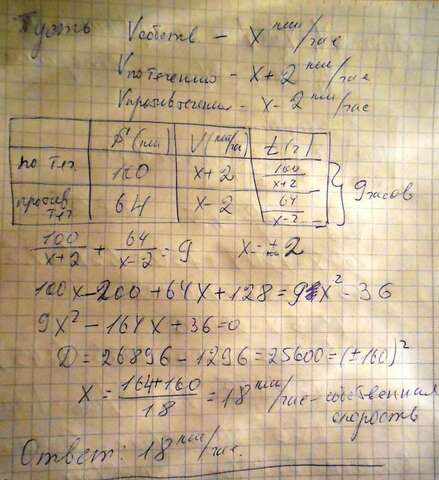 Пусть Vсобств – x км/час
Vпо течению – x + 2 км/час
Vпротив течения – x – 2 км/час
S (км) V (км/ч) t (ч)
по теч. 100 x+2 100/x+2
против теч. 64 x-2 64/x-2 } 9 часов
100/x+2 + 64/x-2 = 9 x = ± 2
100x – 200 + 64x + 128 = 9x² – 36
9x² – 164x + 36 = 0
D = 26896 – 1296 = 25600 = (±160)²
x = 164+160/18 = 18 км/час – собственная скорость
Ответ: 18 км/час.